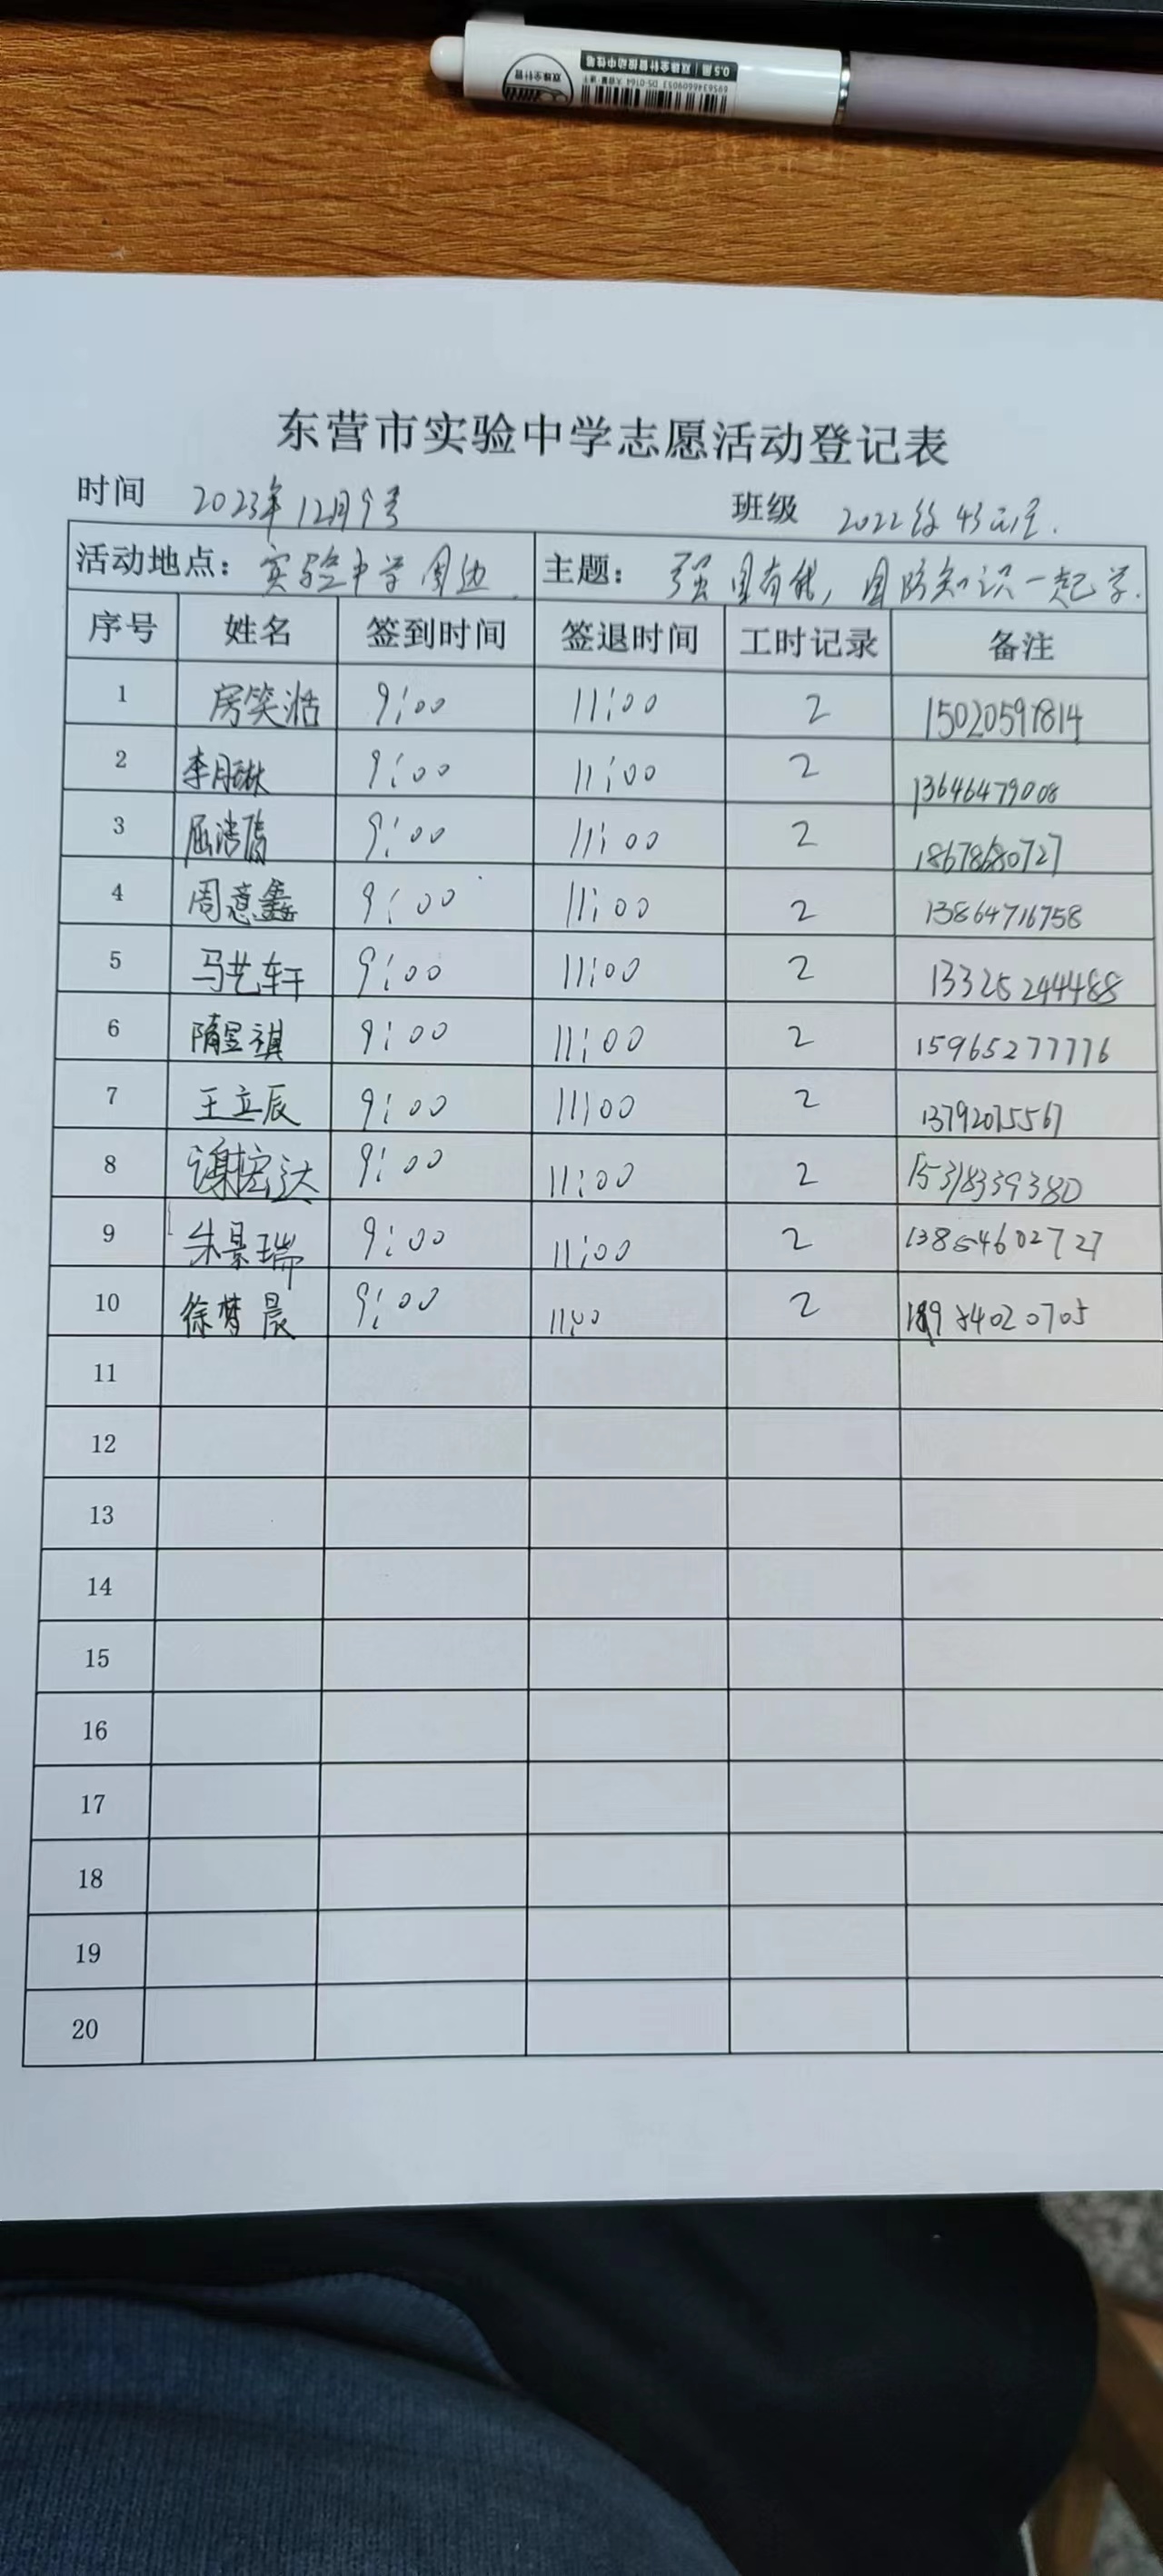 0.5㎜ 双珠全针管按动中性笔
双珠全针管
6956346609053 DS-0164
东营市实验中学志愿活动登记表
时间 2023年12月9号 班级 2022级
活动地点：实验中学周边 主题：强国有我，国防知识一起学.
序号 姓名 签到时间 签退时间 工时记录 备注
1 房笑湉 9:00 11:00 2 15020597814
2 9:00 11:00 2 13646479008
3 9:00 11:00 2 18678680727
4 周意鑫 9:00 11:00 2 13864716758
5 马艺轩 9:00 11:00 2 13325244488
6 隋昱祺 9:00 11:00 2 15965277776
7 王立辰 9:00 11:00 2 13792075567
8 谢宏达 9:00 11:00 2 15318339380
9 朱景瑞 9:00 11:00 2 13854602727
10 徐梦晨 9:00 11:00 2
11
12
13
14
15
16
17
18
19
20